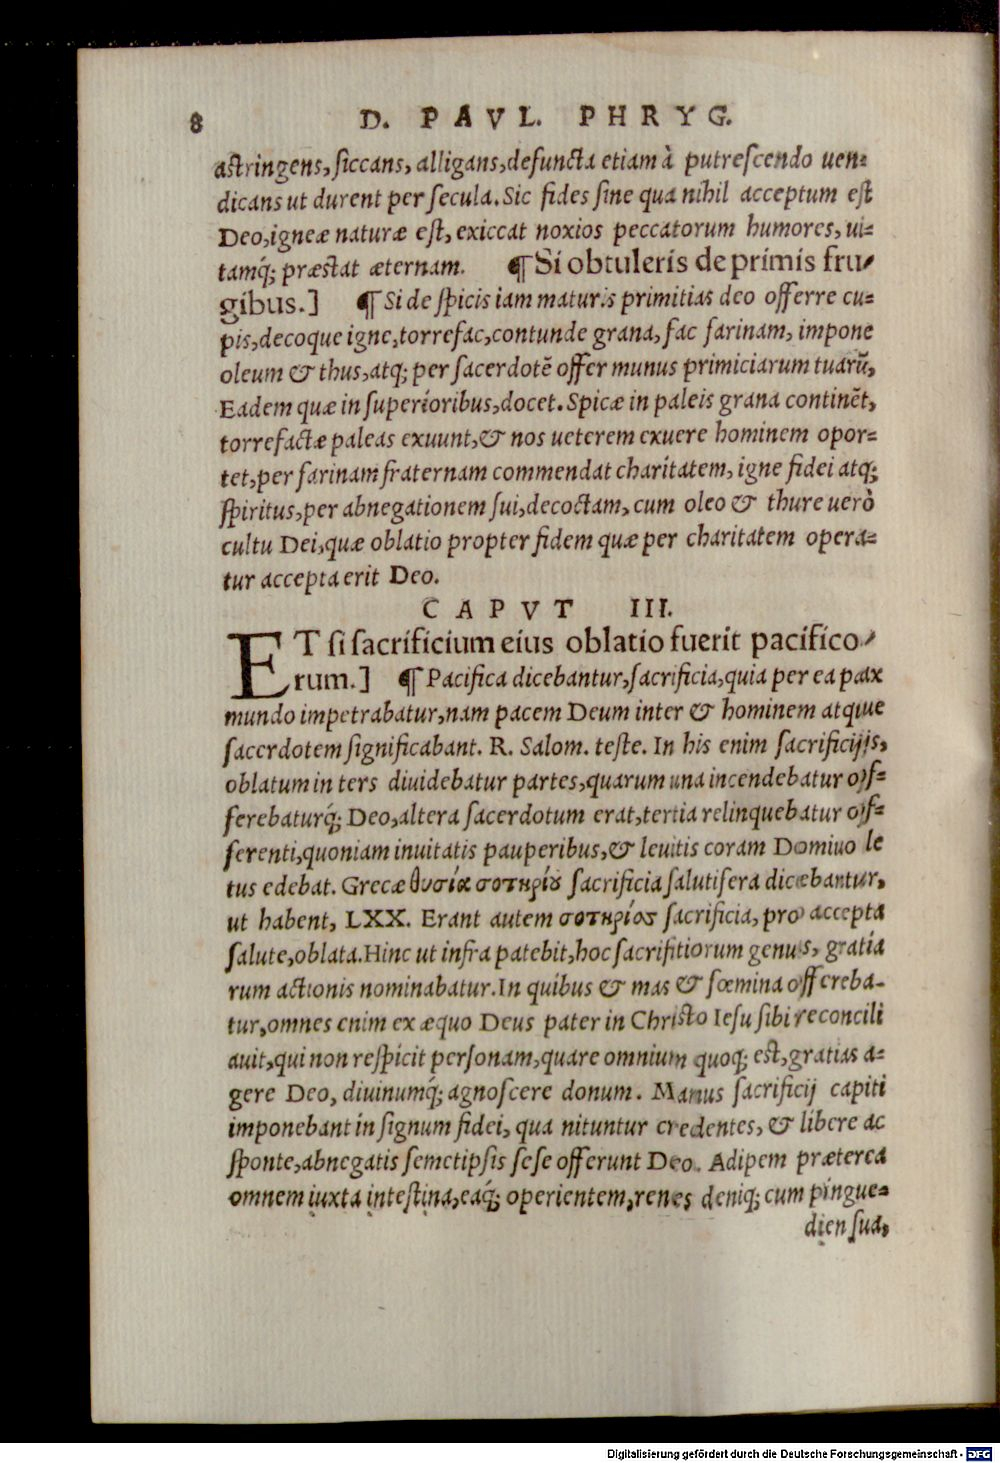 8 D. PAVL. PHRYG.
astringens, siccans, alligans, defuncta etiam à putrescendo uen=
dicans ut durent per secula. Sic fides sine qua nihil acceptum est
Deo, igneæ naturæ est, exiccat noxios peccatorum humores, ui=
tamq́; præstat æternam. ¶ Si obtuleris de primis fru⸗
gibus.] ¶ Si de spicis iam maturis primitias deo offerre cu=
pis, decoque igne, torrefac, contunde grana, fac farinam, impone
oleum & thus, atq; per sacerdotē offer munus primiciarum tuarū,
Eadem quæ in superioribus, docet. Spicæ in paleis grana continēt,
torrefactæ paleas exuunt, & nos ueterem exuere hominem opor=
tet, per farinam fraternam commendat charitatem, igne fidei atq;
spiritus, per abnegationem sui, decoctam, cum oleo & thure uerò
cultu Dei, quæ oblatio propter fidem quæ per charitatem opera=
tur accepta erit Deo.
CAPVT III.
ET si sacrificium eius oblatio fuerit pacifico⸗
rum.] ¶ Pacifica dicebantur, sacrificia, quia per ea pax
mundo impetrabatur, nam pacem Deum inter & hominem atque
sacerdotem significabant. R. Salom. teste. In his enim sacrificijs,
oblatum in ters diuidebatur partes, quarum una incendebatur of=
ferebaturq́; Deo, altera sacerdotum erat, tertia relinquebatur of=
ferenti, quoniam inuitatis pauperibus, & leuitis coram Domino le
tus edebat. Grecæ θυσία σοτηρίȣ sacrificia salutifera dicebantur,
ut habent, LXX. Erant autem σοτηρίοσ sacrificia, pro accepta
salute, oblata. Hinc ut infra patebit, hoc sacrifitiorum genus, gratia
rum actionis nominabatur. In quibus & mas & fœmina offereba-
tur, omnes enim ex æquo Deus pater in Christo Iesu sibi reconcili
auit, qui non respicit personam, quare omnium quoq; est, gratias a=
gere Deo, diuinumq́; agnoscere donum. Manus sacrificij capiti
imponebant in signum fidei, qua nituntur credentes, & libere ac
sponte, abnegatis semetipsis sese offerunt Deo. Adipem præterea
omnem iuxta intestina, eaq́; operientem, renes deniq; cum pingue=
dien sua,
Digitalisierung gefördert durch die Deutsche Forschungsgemeinschaft - DFG